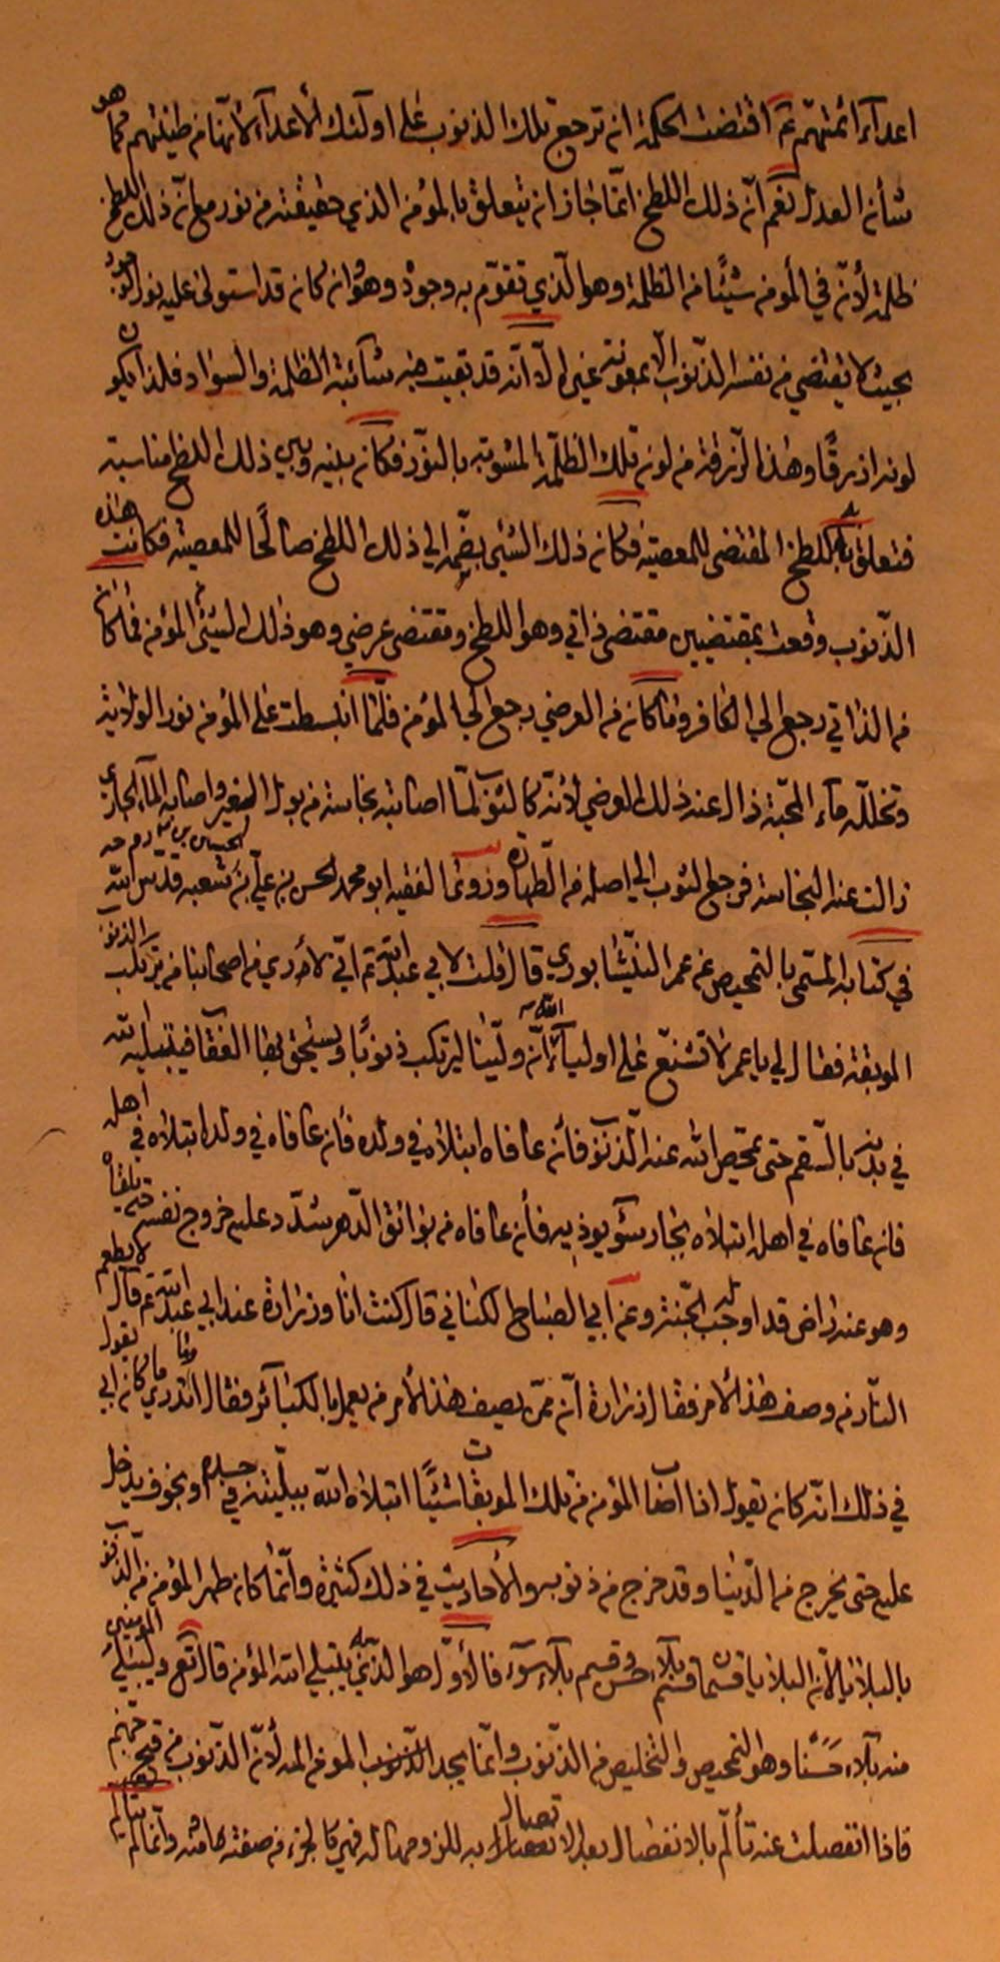 اعدآء ائمتهم عم اقتضت الحكمة ان ترجع تلك الذنوب على اولئك الأعدآء لأنها من طينتهم كما هو
شأن العدل نعم انّ ذلك اللطخ انما جاز ان يتعلق بالمؤمن الذي حقيقته من نور مع انّ ذلك اللطخ
ظلمة لأنّ في المؤمن شيئًا من الظلمة وهو الّذي تقوّم به وجوده وهو وان كان قد استولى عليه نور الوجود
بحيث لا يقتضي من نفسه الذنوب الا بمعونة غيره الّا انّه قد بقيت فيه شائبة الظلمة والسواد فلذا يكون
لونه ازرقًا وهذه الزرقة من لون تلك الظلمة المشوبة بالنور فكان بينه وبين ذلك اللطخ مناسبة
فتعلق به اللطخ المقتضى للمعصية فكان ذلك الشيئ بضمه الي ذلك اللطخ صالحًا للمعصية فكانت هذه
الذنوب وقعت بمقتضيين مقتضى ذاتي وهو اللطخ ومقتضى عرضي وهو ذلك الشيئ المؤمن فما كان
من الذاتي رجع الي الكافر وما كان من العرضي رجع الي المؤمن فلمّا انبسطت على المؤمن نور الولاية
وتخلله مآء المحبة زال عنه ذلك العرضي لأنه كالثوب لمّا اصابته نجاسة من بول الصغير واصابه المآء الجاري
زالت عنه النجاسة فرجع الثوب الي اصله من الطهارة وروى الفقيه ابو محمد الحسن بن علي بن الحسين بن شعبه قدّس الله روحه
في كتابه المسمى بالتمحيص عن عمر النيشابوري قال قلت لابي عبدالله عم اني لأرى من اصحابنا من يرتكب الذنوب
الموبقة فقال لي يا عمر لا تشنع على اوليآء الله انّ وليّنا ليرتكب ذنوبًا ويستحق بها العقاب فيبتليه الله
في بدنه بالسّقم حتى يمحّص الله عنه الذنوب فأن عافاه ابتلاه في ولده فأن عافاه في ولده ابتلاه في اهله
فان عافاه في اهله ابتلاه بجار سوء يوذيه فأن عافاه من بوائق الدّهر شدّد عليه خروج نفسه حتى يلقاه
وهو عنه راض قد اوجب له الجّنة وعن ابي الصباح الكناني قال كنت انا وزرارة عند ابي عبدالله عم قال لا يطعم
النّار من وصف هذا الأمر فقال زرارة انّ ممّن يصف هذا الأمر من يعمل بالكبائر فقال اتدري ما كان ابي يقول
في ذلك انّه كان يقول اذا اصاب المؤمن من تلك الموبقات شيئًا ابتلاه الله ببليّة في جسده وبخوف يدخل
عليه حتى يخرج من الدّنيا وقد خرج من ذنوبه والأحاديث في ذلك كثيرة وانّما كان طهر المؤمن من الذنوب
بالبلايا لأنّ البلايا قسمان قسم بلاء حسن وقسم بلاء سوء فالأوّل هو الذي يبتلي به الله المؤمن قال تع وليبلي المؤمنين
منه بلاء حسنًا وهو التمحيص والتخليص من الذّنوب وانّما يجد المؤمن المه لأنّ الذنوب من قيح جهنم
فاذا انفصلت عنه تألّم بالانفصال بعد الاتصال به للزومها له فهي كالجزء من صفته هامته وانّما لم يتألم